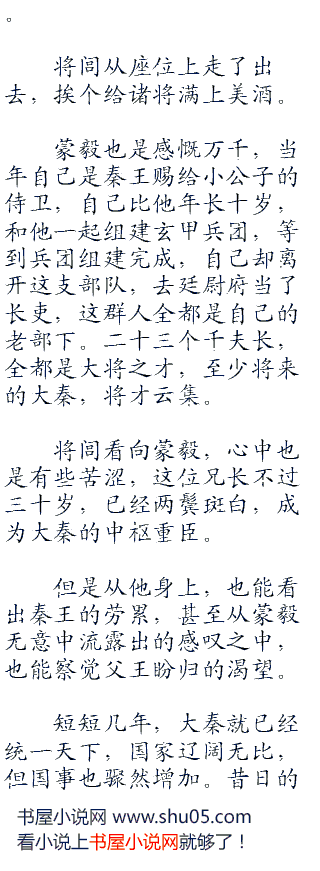 。
将闾从座位上走了出
去，挨个给诸将满上美酒。
蒙毅也是感慨万千，当
年自己是秦王赐给小公子的
侍卫，自己比他年长十岁，
和他一起组建玄甲兵团，等
到兵团组建完成，自己却离
开这支部队，去廷尉府当了
长吏，这群人全都是自己的
老部下。二十三个千夫长，
全都是大将之才，至少将来
的大秦，将才云集。
将闾看向蒙毅，心中也
是有些苦涩，这位兄长不过
三十岁，已经两鬓斑白，成
为大秦的中枢重臣。
但是从他身上，也能看
出秦王的劳累，甚至从蒙毅
无意中流露出的感叹之中，
也能察觉父王盼归的渴望。
短短几年，大秦就已经
统一天下，国家辽阔无比，
但国事也骤然增加。昔日的
书屋小说网 www.shu05.com
看小说上书屋小说网就够了！